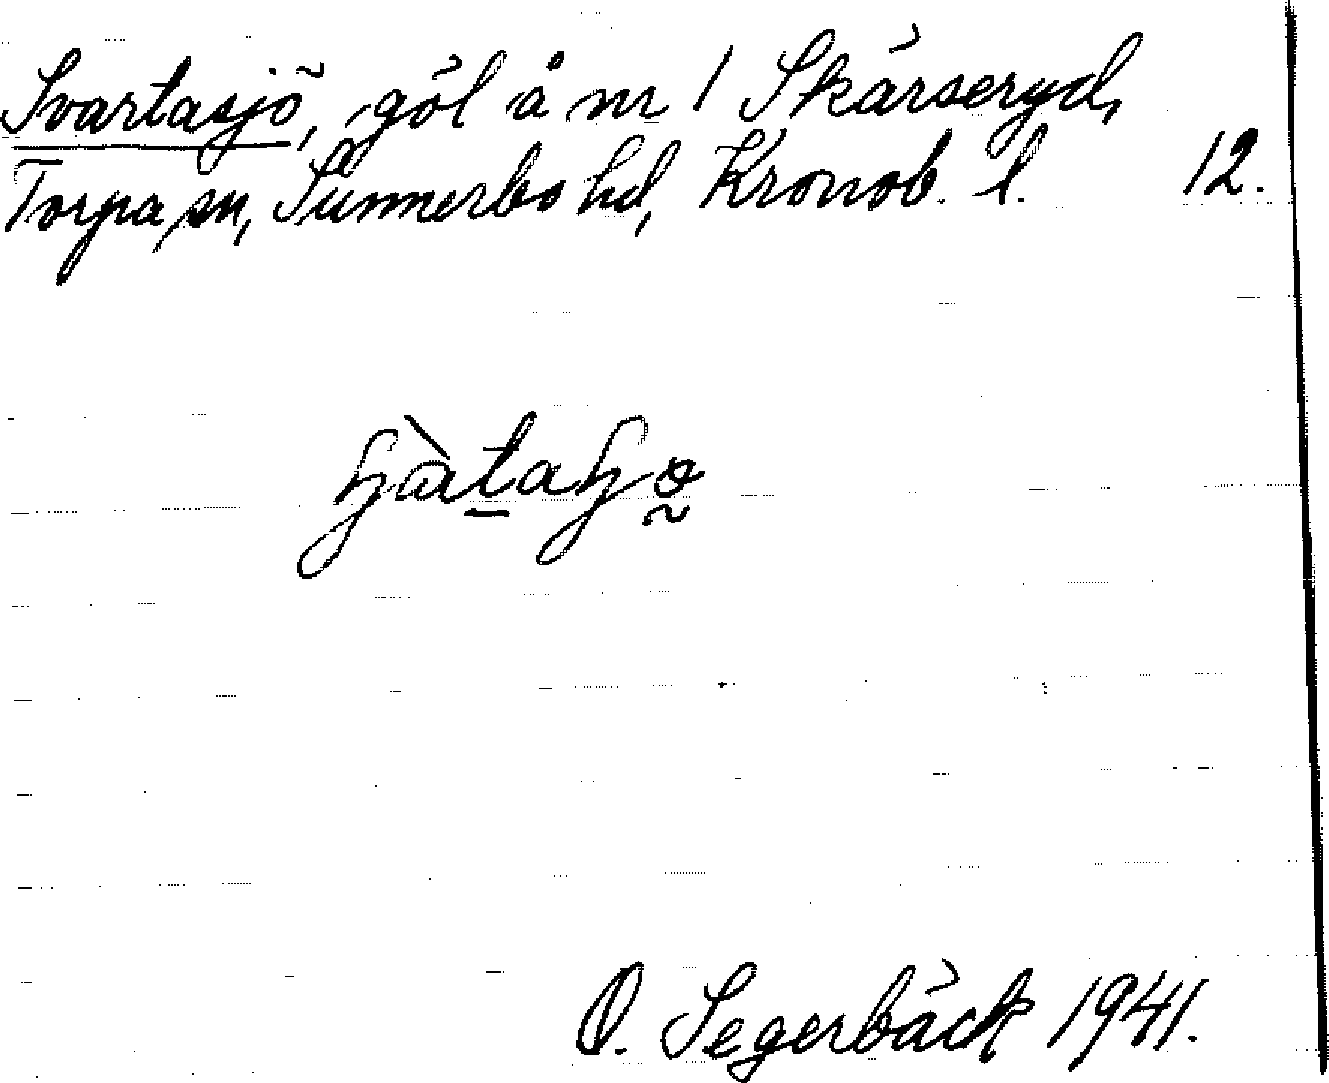 Svartasjö, göl å nr 1 Skärseryd,
Torpa sn, Sunnerbo hd, Kronob. l. 12.
O. Segerbäck 1941.